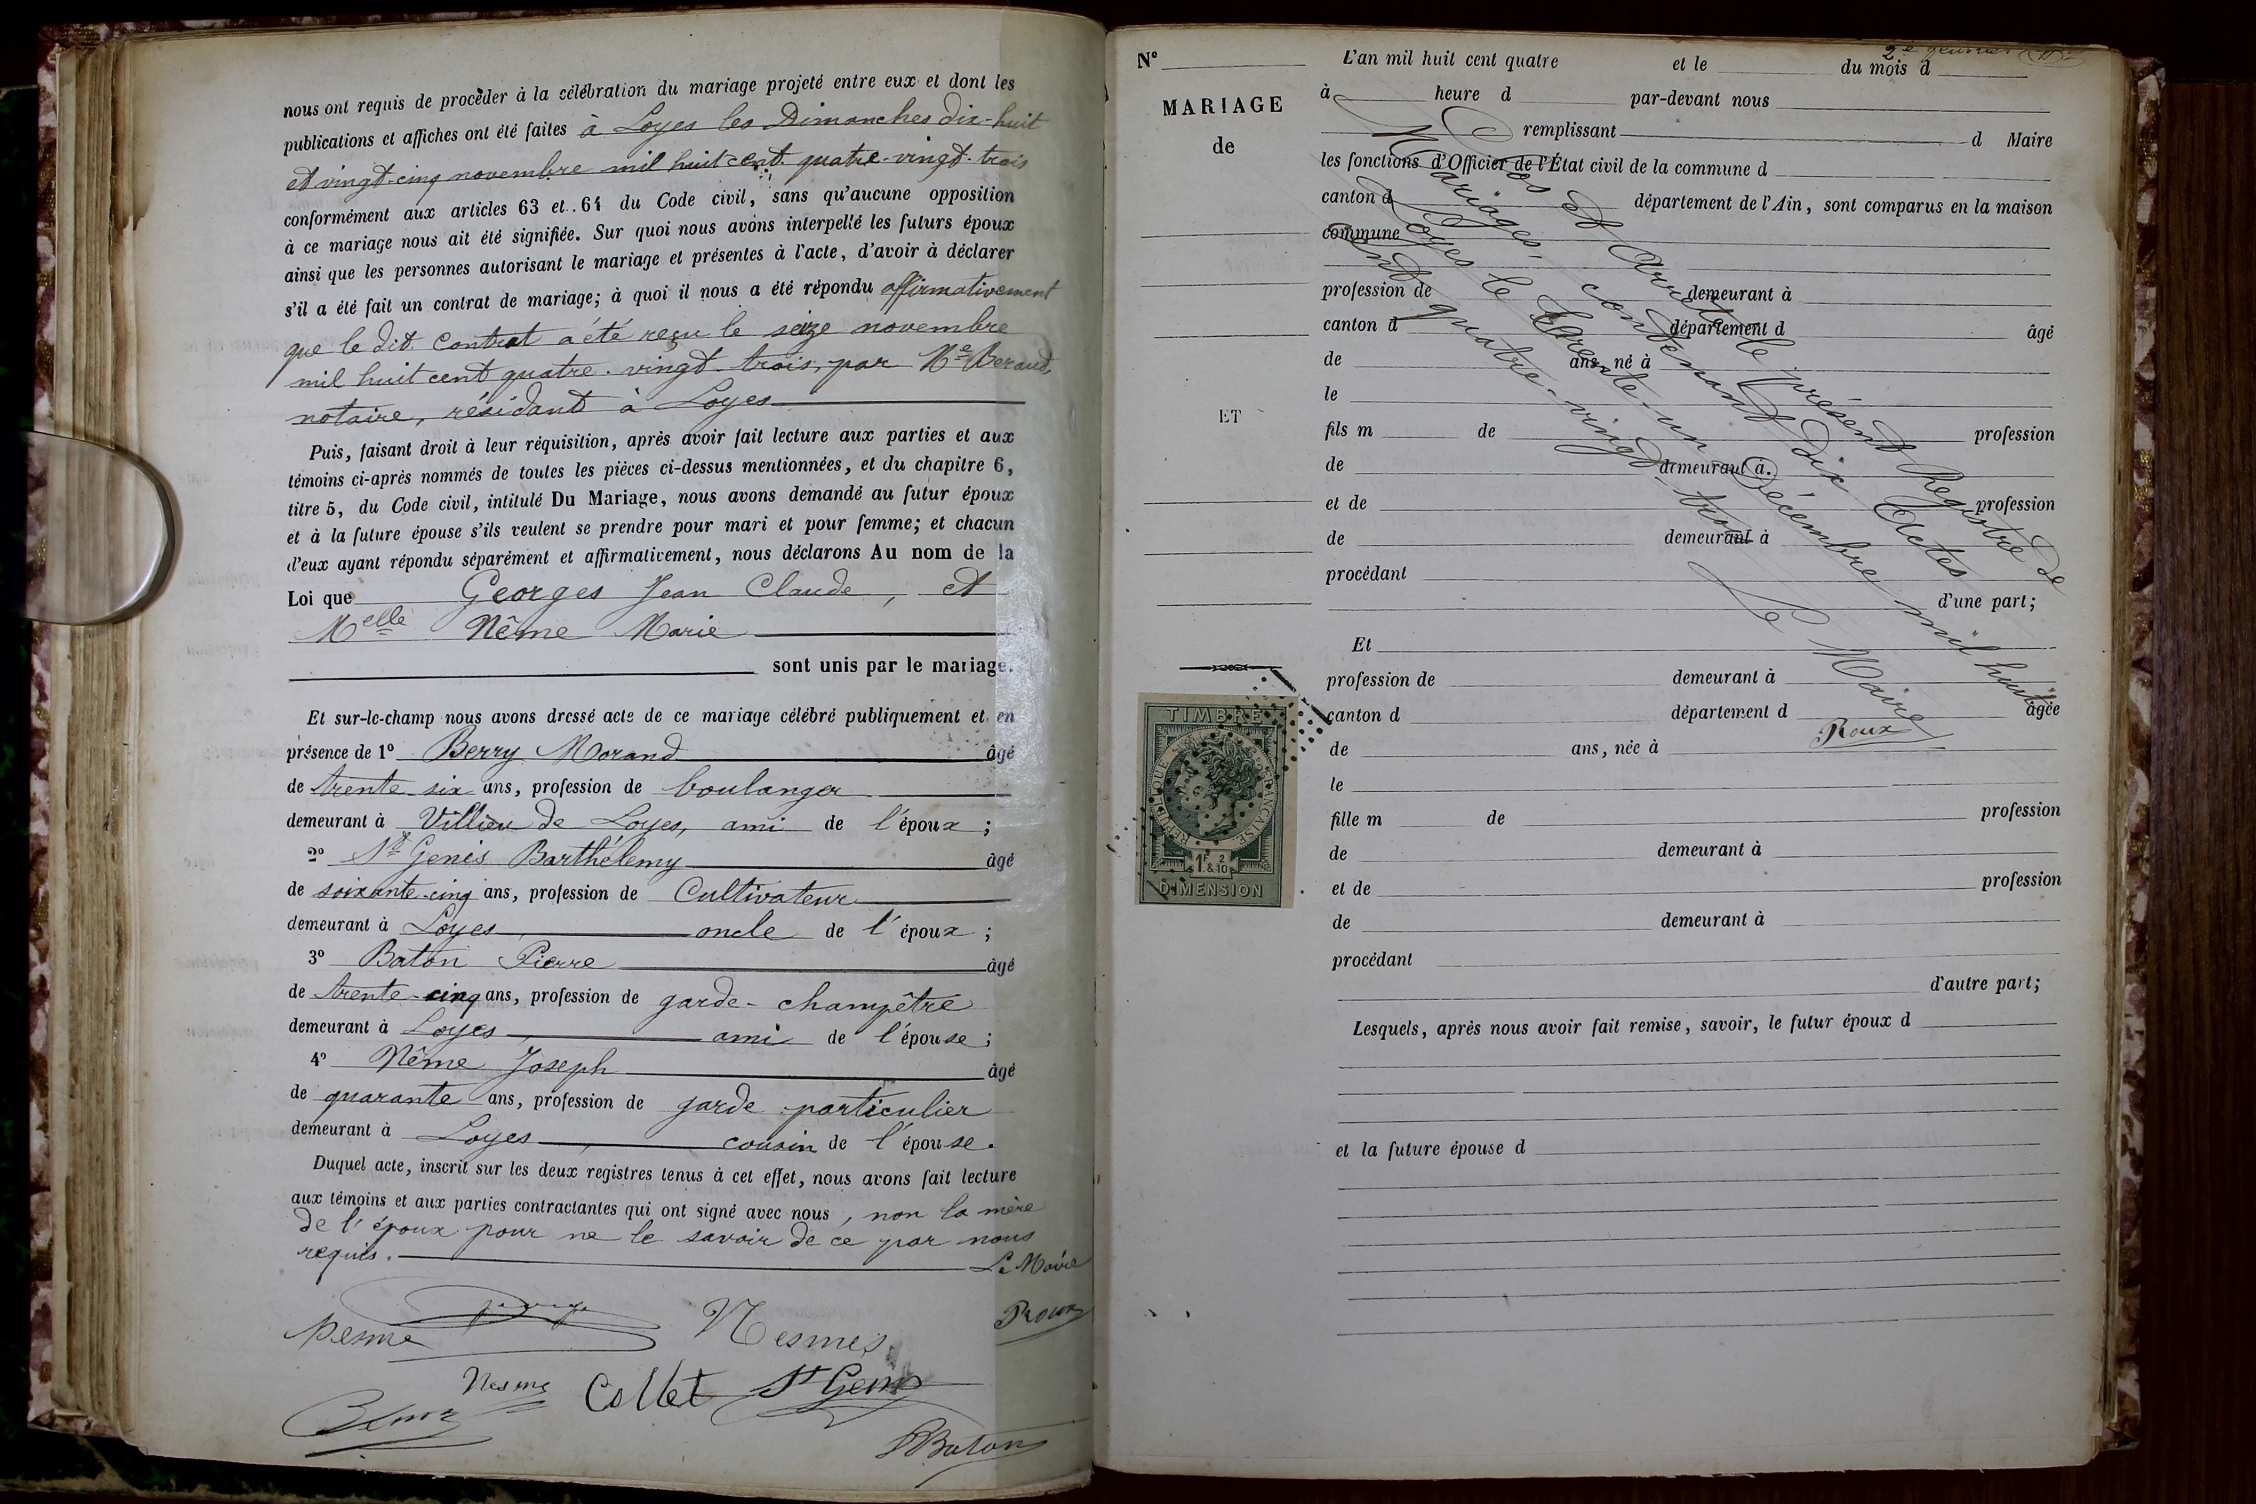 nous ont requis de procéder à la célébration du mariage projeté entre eux et dont les
publications et affiches ont été faites à Loyes les Dimanches dix-huit
et vingt-cinq novembre mil huit cent quatre-vingt-trois
conformément aux articles 63 et 64 du Code civil, sans qu'aucune opposition
à ce mariage nous ait été signifiée. Sur quoi nous avons interpellé les futurs époux
ainsi que les personnes autorisant le mariage et présentes à l'acte, d'avoir à déclarer
s'il a été fait un contrat de mariage; à quoi il nous a été répondu affirmativement
que le dit contrat a été reçu le seize novembre
mil huit cent quatre-vingt-trois, par Me Beraud,
notaire, résidant à Loyes
Puis, faisant droit à leur réquisition, après avoir fait lecture aux parties et aux
témoins ci-après nommés de toutes les pièces ci-dessus mentionnées, et du chapitre 6,
titre 5, du Code civil, intitulé Du Mariage, nous avons demandé au futur époux
et à la future épouse s'ils veulent se prendre pour mari et pour femme; et chacun
d'eux ayant répondu séparément et affirmativement, nous déclarons Au nom de la
Loi que Georges Jean Claude, et
Melle Nême Marie
sont unis par le mariage.
Et sur-le-champ nous avons dressé acte de ce mariage célébré publiquement et en
présence de 1º Berry Morand âgé
de trente six ans, profession de boulanger
demeurant à Villieu de Loyes, ami de l'époux;
2º St Genis Barthélemy âgé
de soixante-cinq ans, profession de Cultivateur
demeurant à Loyes, oncle de l'époux;
3º Baton Pierre âgé
de trente-cinq ans, profession de garde-champêtre
demeurant à Loyes, ami de l'épouse;
4º Nême Joseph âgé
de quarante ans, profession de garde particulier
demeurant à Loyes, cousin de l'épouse.
Duquel acte, inscrit sur les deux registres tenus à cet effet, nous avons fait lecture
aux témoins et aux parties contractantes qui ont signé avec nous, non la mère
de l'époux pour ne le savoir de ce par nous
requis.
Le Maire
Roux
Nesme
Nesmes
Nesme Collet St Genis
Baton
Nº
MARIAGE
de
ET
TIMBRE
RÉPUBLIQUE FRANÇAISE
1F. 2 & 10
DIMENSION
2e
L'an mil huit cent quatre et le du mois d
à heure d par-devant nous
remplissant d Maire
les fonctions d'Officier de l'État civil de la commune d
canton d département de l'Ain, sont comparus en la maison
commune
profession de demeurant à
canton d département d âgé
de ans, né à
le
fils m de profession
de demeurant à
et de profession
de demeurant à
procédant
d'une part;
Et
profession de demeurant à
canton d département d âgée
de ans, née à
le
fille m de profession
de demeurant à
et de profession
de demeurant à
procédant
d'autre part;
Lesquels, après nous avoir fait remise, savoir, le futur époux d
et la future épouse d
Clos et Arrêté le présent Registre de
Mariages, contenant dix Actes
Loyes le trente-un Décembre mil huit
cent quatre-vingt-trois
Le Maire
Roux